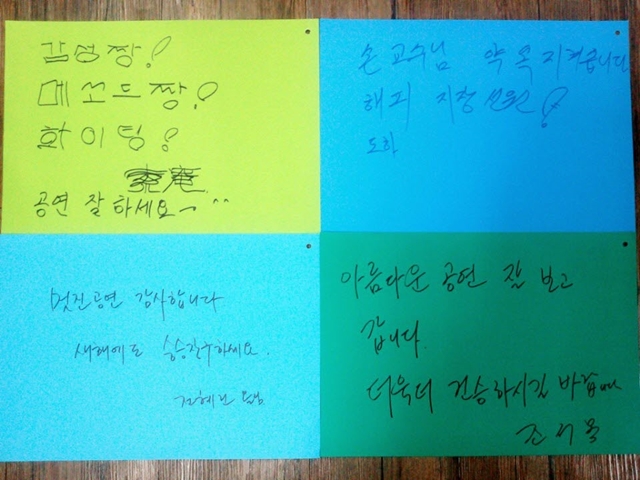 감성짱!
메소드짱!
화이팅!
공연 잘하세요~^^
손교수님 약속 지켰습니다
해피
도하
멋진공연 감사합니다
새해에도 승승장구하세요.
아름다운 공연 잘 보고
갑니다.
더욱더 건승하시길 바랍니다